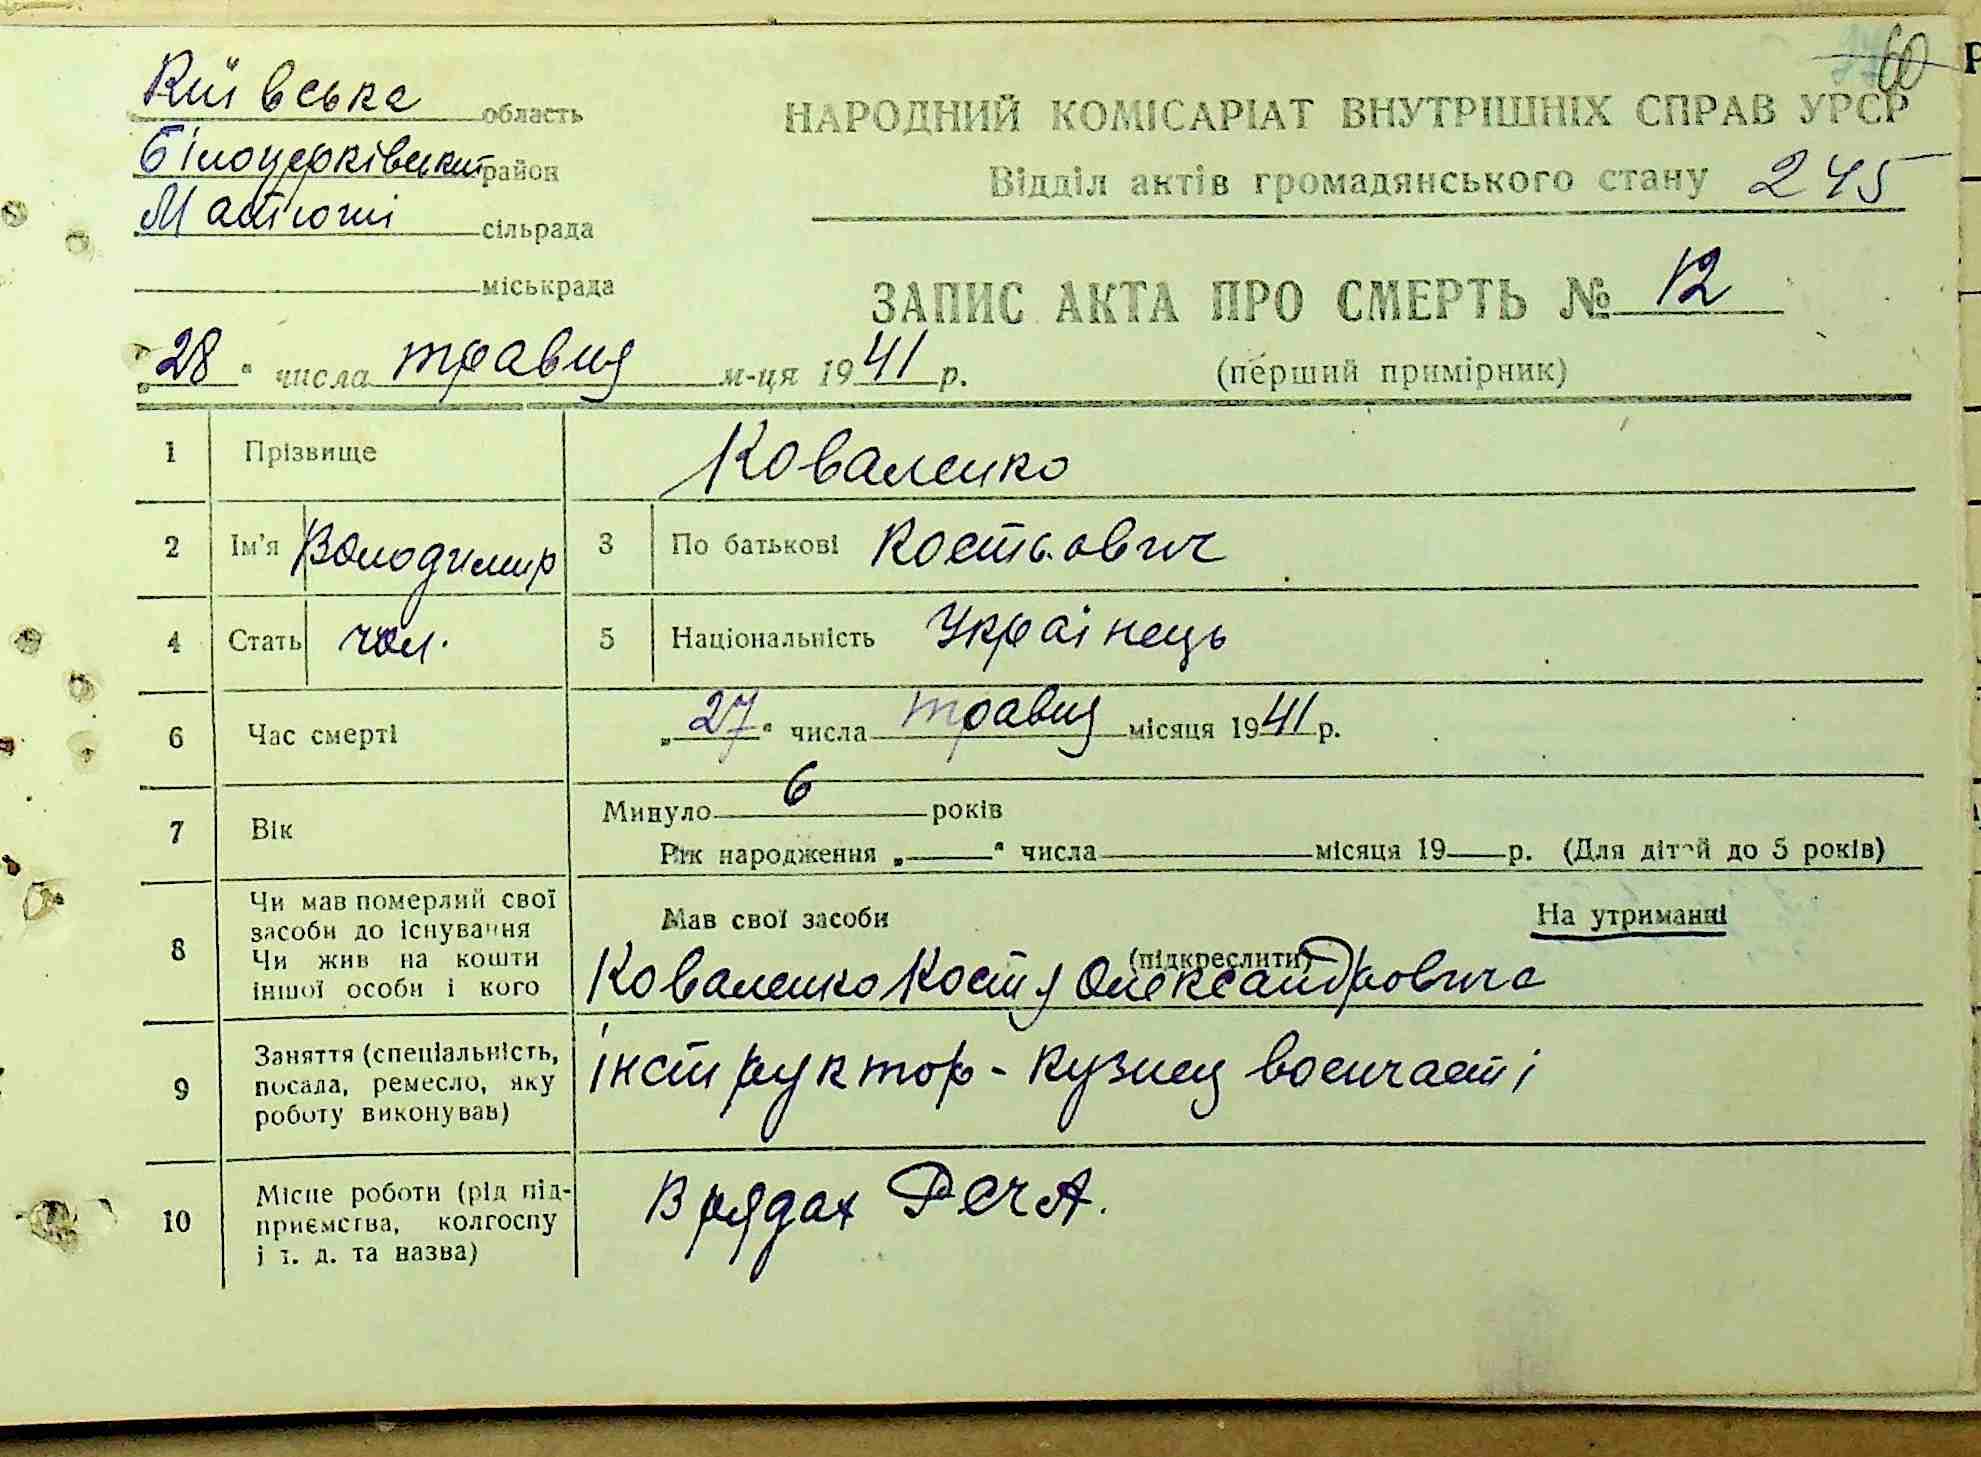 60
Київська область
НАРОДНИЙ КОМІСАРІАТ ВНУТРІШНІХ СПРАВ УРСР
Білоцерківський район
Відділ актів громадянського стану 245
сільрада
міськрада
ЗАПИС АКТА ПРО СМЕРТЬ № 12
„28“ числа травня м-ця 1941 р.
(перший примірник)
1 Прізвище Коваленко
2 Ім'я Володимир 3 По батькові Костьович
4 Стать чол. 5 Національність Українець
6 Час смерті „27“ числа травня місяця 1941 р.
7 Вік Минуло 6 років
Рік народження „ “ числа місяця 19 р. (Для дітей до 5 років)
8 Чи мав померлий свої засоби до існування Чи жив на кошти іншої особи і кого
Мав свої засоби На утриманні
(підкреслити)
Коваленко Костя Олександровича
9 Заняття (спеціальність, посада, ремесло, яку роботу виконував)
інструктор - кузнец военчасті
10 Місце роботи (рід підприємства, колгоспу і т. д. та назва)
В рядах